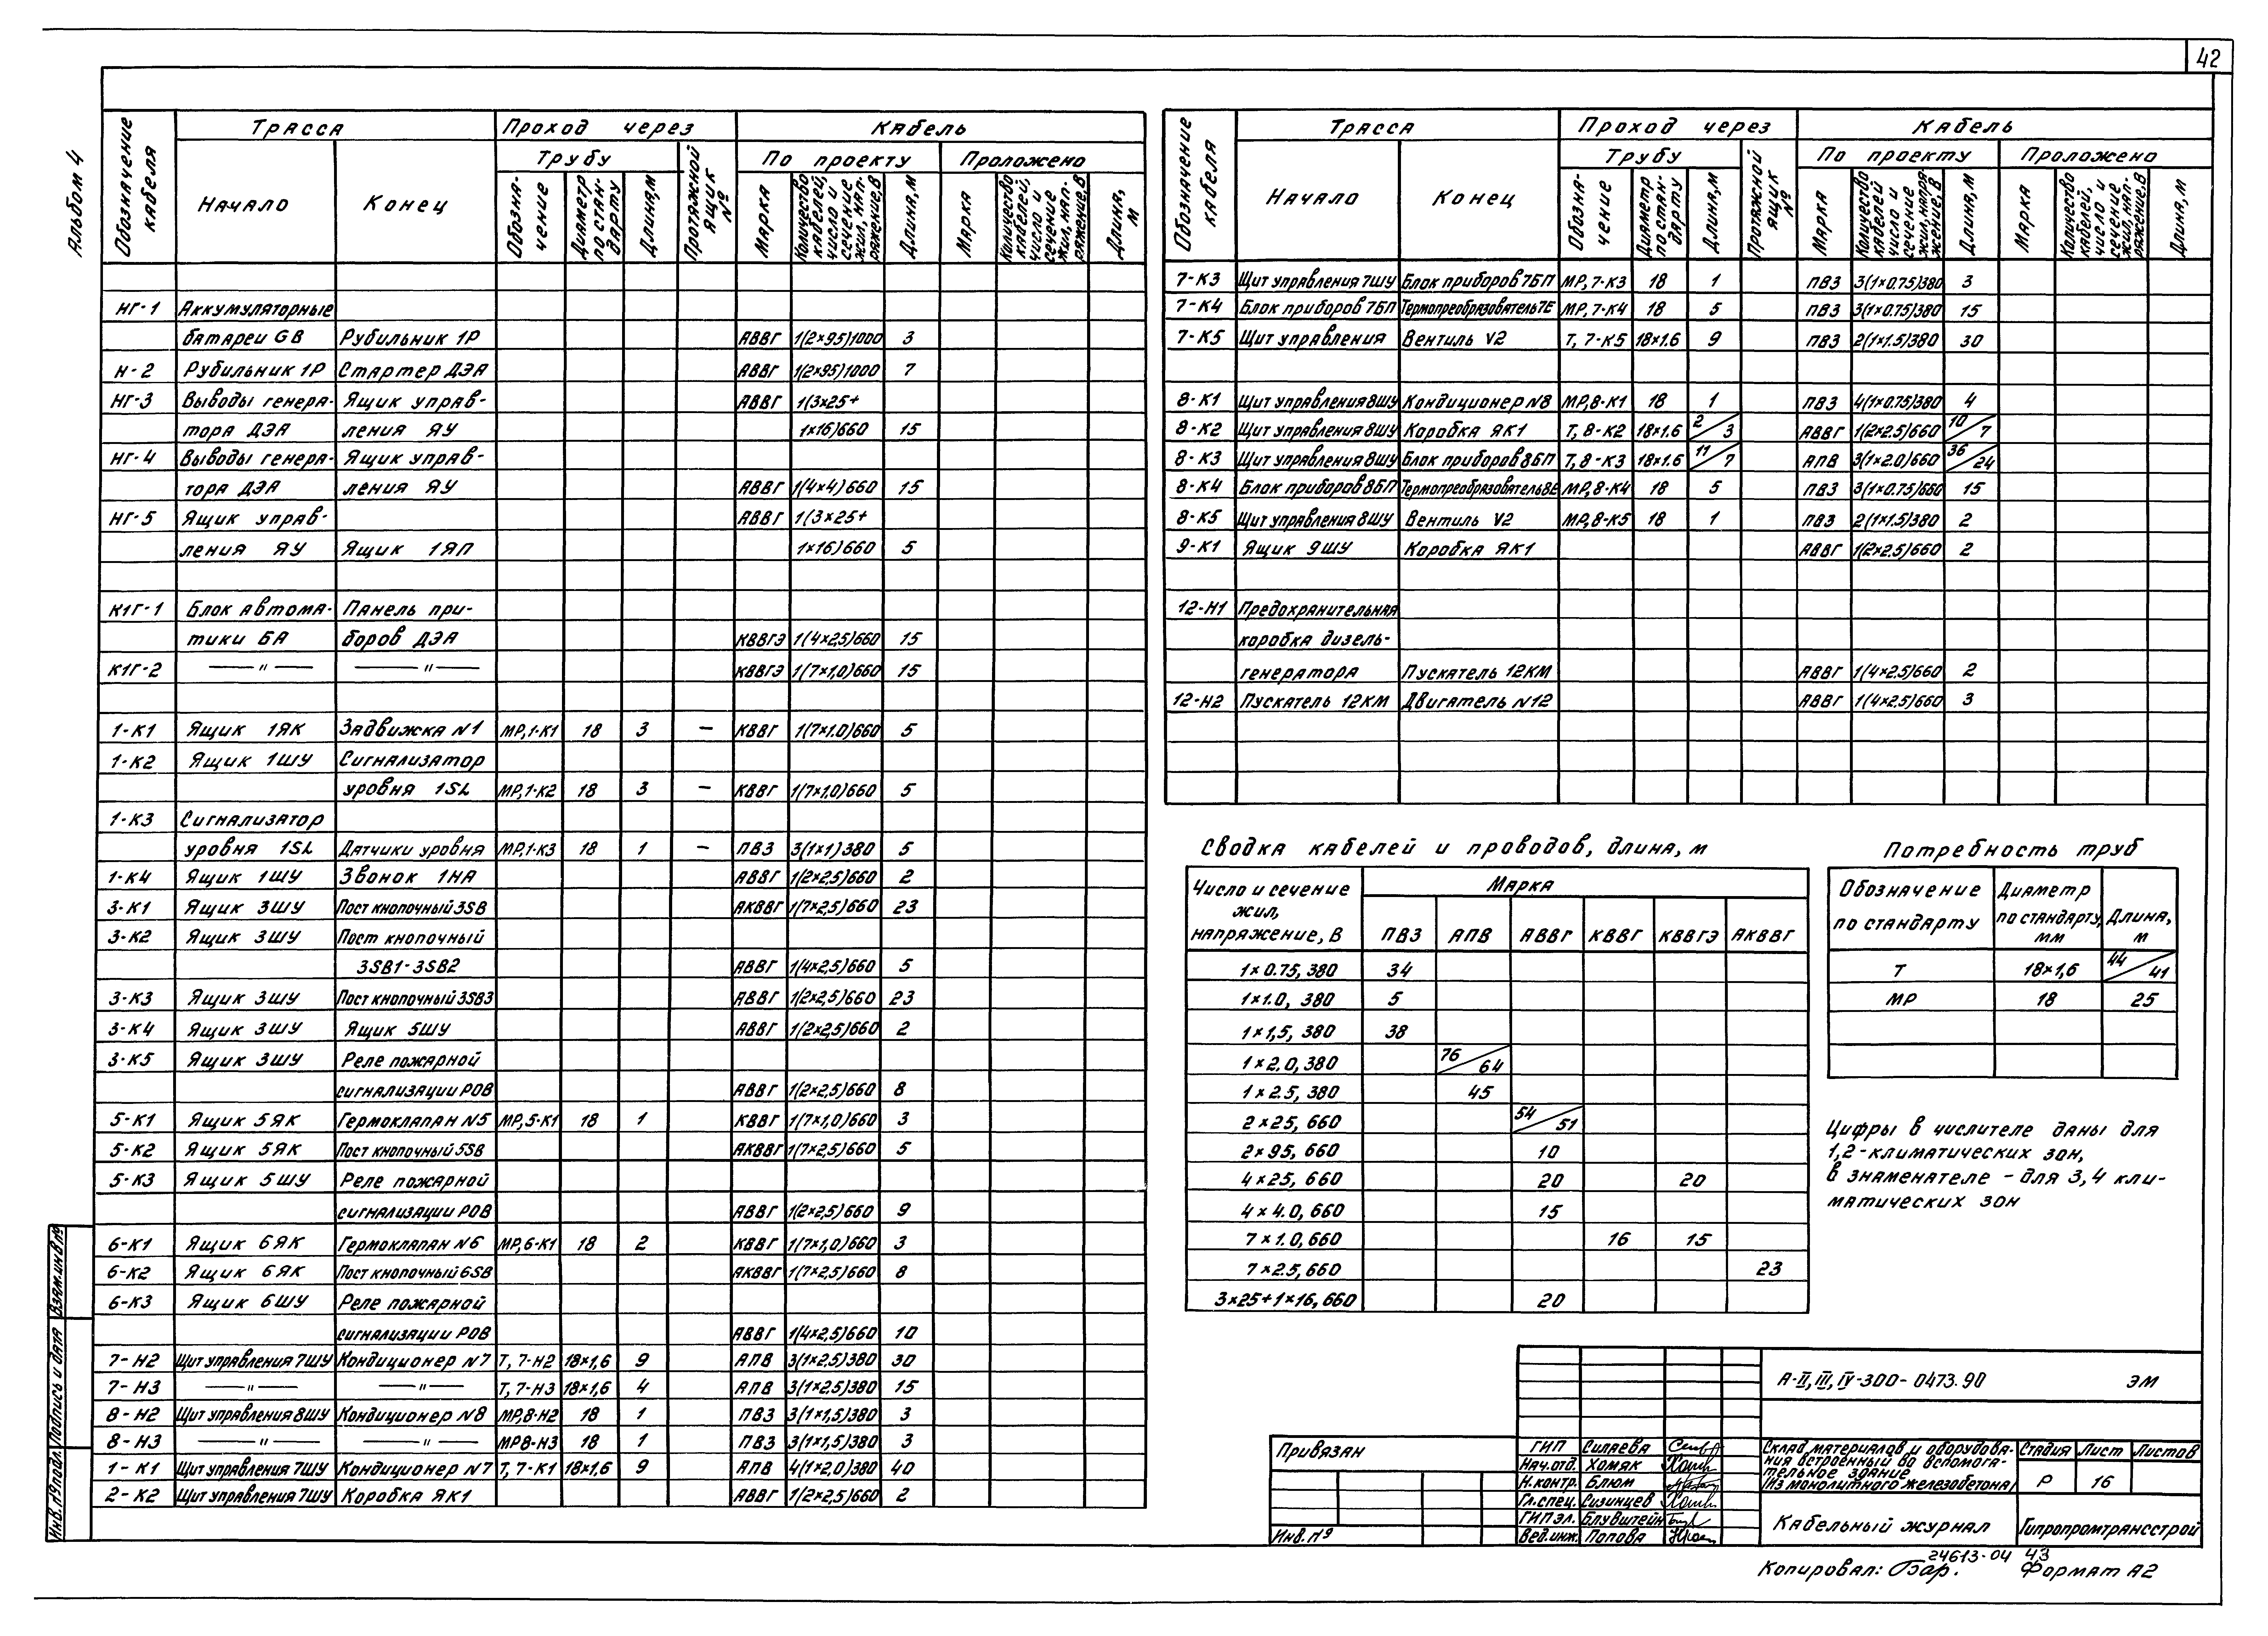 42
Альбом 4
Обозначение кабеля | Трасса | Проход через | Кабель
Начало | Конец | Трубу | Протяжной ящик № | По проекту | Проложено
Обозначение | Диаметр по стандарту | Длина, м | Марка | Количество кабелей, число и сечение жил, напряжение, В | Длина, м | Марка | Количество кабелей, число и сечение жил, напряжение, В | Длина, м
НГ-1 Аккумуляторные
батареи GB Рубильник 1Р АВВГ 1(2×95)1000 3
Н-2 Рубильник 1Р Стартер ДЭА АВВГ 1(2×95)1000 7
НГ-3 Выводы генера- Ящик управ- АВВГ 1(3×25+
тора ДЭА ления ЯУ 1×16)660 15
НГ-4 Выводы генера- Ящик управ-
тора ДЭА ления ЯУ АВВГ 1(4×4)660 15
НГ-5 Ящик управ- АВВГ 1(3×25+
ления ЯУ Ящик 1ЯП 1×16)660 5
К1Г-1 Блок автома- Панель при-
тики БА боров ДЭА КВВГЭ 1(4×2,5)660 15
К1Г-2 — " — — " — КВВГЭ 1(7×1,0)660 15
1-К1 Ящик 1ЯК Задвижка N1 МР,1-К1 18 3 — КВВГ 1(7×1.0)660 5
1-К2 Ящик 1ШУ Сигнализатор
уровня 1SL МР,1-К2 18 3 — КВВГ 1(7×1,0)660 5
1-К3 Сигнализатор
уровня 1SL Датчики уровня МР,1-К3 18 1 — ПВ3 3(1×1)380 5
1-К4 Ящик 1ШУ Звонок 1НА АВВГ 1(2×2,5)660 2
3-К1 Ящик 3ШУ Пост кнопочный 3SB АКВВГ 1(7×2,5)660 23
3-К2 Ящик 3ШУ Пост кнопочный
3SB1-3SB2 АВВГ 1(4×2,5)660 5
3-К3 Ящик 3ШУ Пост кнопочный 3SB3 АВВГ 1(2×2,5)660 23
3-К4 Ящик 3ШУ Ящик 5ШУ АВВГ 1(2×2,5)660 2
3-К5 Ящик 3ШУ Реле пожарной
сигнализации РОВ АВВГ 1(2×2,5)660 8
5-К1 Ящик 5ЯК Гермоклапан N5 МР,5-К1 18 1 КВВГ 1(7×1,0)660 3
5-К2 Ящик 5ЯК Пост кнопочный 5SB АКВВГ 1(7×2,5)660 5
5-К3 Ящик 5ШУ Реле пожарной
сигнализации РОВ АВВГ 1(2×2,5)660 9
6-К1 Ящик 6ЯК Гермоклапан N6 МР,6-К1 18 2 КВВГ 1(7×1,0)660 3
6-К2 Ящик 6ЯК Пост кнопочный 6SB АКВВГ 1(7×2,5)660 8
6-К3 Ящик 6ШУ Реле пожарной
сигнализации РОВ АВВГ 1(4×2,5)660 10
7-Н2 Щит управления 7ШУ Кондиционер N7 Т, 7-Н2 18×1,6 9 АПВ 3(1×2.5)380 30
7-Н3 — " — — " — Т, 7-Н3 18×1,6 4 АПВ 3(1×2.5)380 15
8-Н2 Щит управления 8ШУ Кондиционер N8 МР,8-Н2 18 1 ПВ3 3(1×1,5)380 3
8-Н3 — " — — " — МР8-Н3 18 1 ПВ3 3(1×1,5)380 3
1-К1 Щит управления 7ШУ Кондиционер N7 Т, 7-К1 18×1,6 9 АПВ 4(1×2,0)380 40
2-К2 Щит управления 7ШУ Коробка ЯК1 АВВГ 1(2×2,5)660 2
Обозначение кабеля | Трасса | Проход через | Кабель
Начало | Конец | Трубу | Протяжной ящик № | По проекту | Проложено
Обозначение | Диаметр по стандарту | Длина, м | Марка | Количество кабелей число и сечение жил, напряжение, В | Длина, м | Марка | Количество кабелей, число и сечение жил, напряжение, В | Длина, м
7-К3 Щит управления 7ШУ Блок приборов 7БП МР, 7-К3 18 1 ПВ3 3(1×0.75)380 3
7-К4 Блок приборов 7БП Термопреобразователь 7Е МР, 7-К4 18 5 ПВ3 3(1×0.75)380 15
7-К5 Щит управления Вентиль V2 Т, 7-К5 18×1.6 9 ПВ3 2(1×1.5)380 30
8-К1 Щит управления 8ШУ Кондиционер N8 МР,8-К1 18 1 ПВ3 4(1×0.75)380 4
8-К2 Щит управления 8ШУ Коробка ЯК1 Т, 8-К2 18×1.6 2/3 АВВГ 1(2×2.5)660 10/7
8-К3 Щит управления 8ШУ Блок приборов 8БП Т, 8-К3 18×1.6 11/7 АПВ 3(1×2.0)660 36/24
8-К4 Блок приборов 8БП Термопреобразователь 8Е МР, 8-К4 18 5 ПВ3 3(1×0.75)660 15
8-К5 Щит управления 8ШУ Вентиль V2 МР,8-К5 18 1 ПВ3 2(1×1.5)380 2
9-К1 Ящик 9ШУ Коробка ЯК1 АВВГ 1(2×2.5)660 2
12-Н1 Предохранительная
коробка дизель-
генератора Пускатель 12КМ АВВГ 1(4×2.5)660 2
12-Н2 Пускатель 12КМ Двигатель N12 АВВГ 1(4×2.5)660 3
Сводка кабелей и проводов, длина, м
Число и сечение жил, напряжение, В | Марка
ПВ3 АПВ АВВГ КВВГ КВВГЭ АКВВГ
1×0.75, 380 34
1×1.0, 380 5
1×1,5, 380 38
1×2.0, 380 76/64
1×2.5, 380 45
2×25, 660 54/51
2×95, 660 10
4×25, 660 20 20
4×4.0, 660 15
7×1.0, 660 16 15
7×2.5, 660 23
3×25+1×16, 660 20
Потребность труб
Обозначение по стандарту | Диаметр по стандарту, мм | Длина, м
Т 18×1,6 44/41
МР 18 25
Цифры в числителе даны для
1,2-климатических зон,
в знаменателе – для 3,4 кли-
матических зон
Взам.инв.№
Подпись и дата
Инв.№подл.
А-II, III, IV-300-0473.90 ЭМ
Привязан
Инв.№
ГИП Силаева
Нач.отд. Хомяк
Н.контр. Блюм
Гл.спец. Сизинцев
ГИП эл. Блувштейн
Вед.инж. Попова
Склад материалов и оборудова-
ния встроенный во вспомога-
тельное здание
(из монолитного железобетона)
Стадия Лист Листов
Р 16
Кабельный журнал
Гипропромтрансстрой
24613-04 43
Копировал: Бар. Формат А2